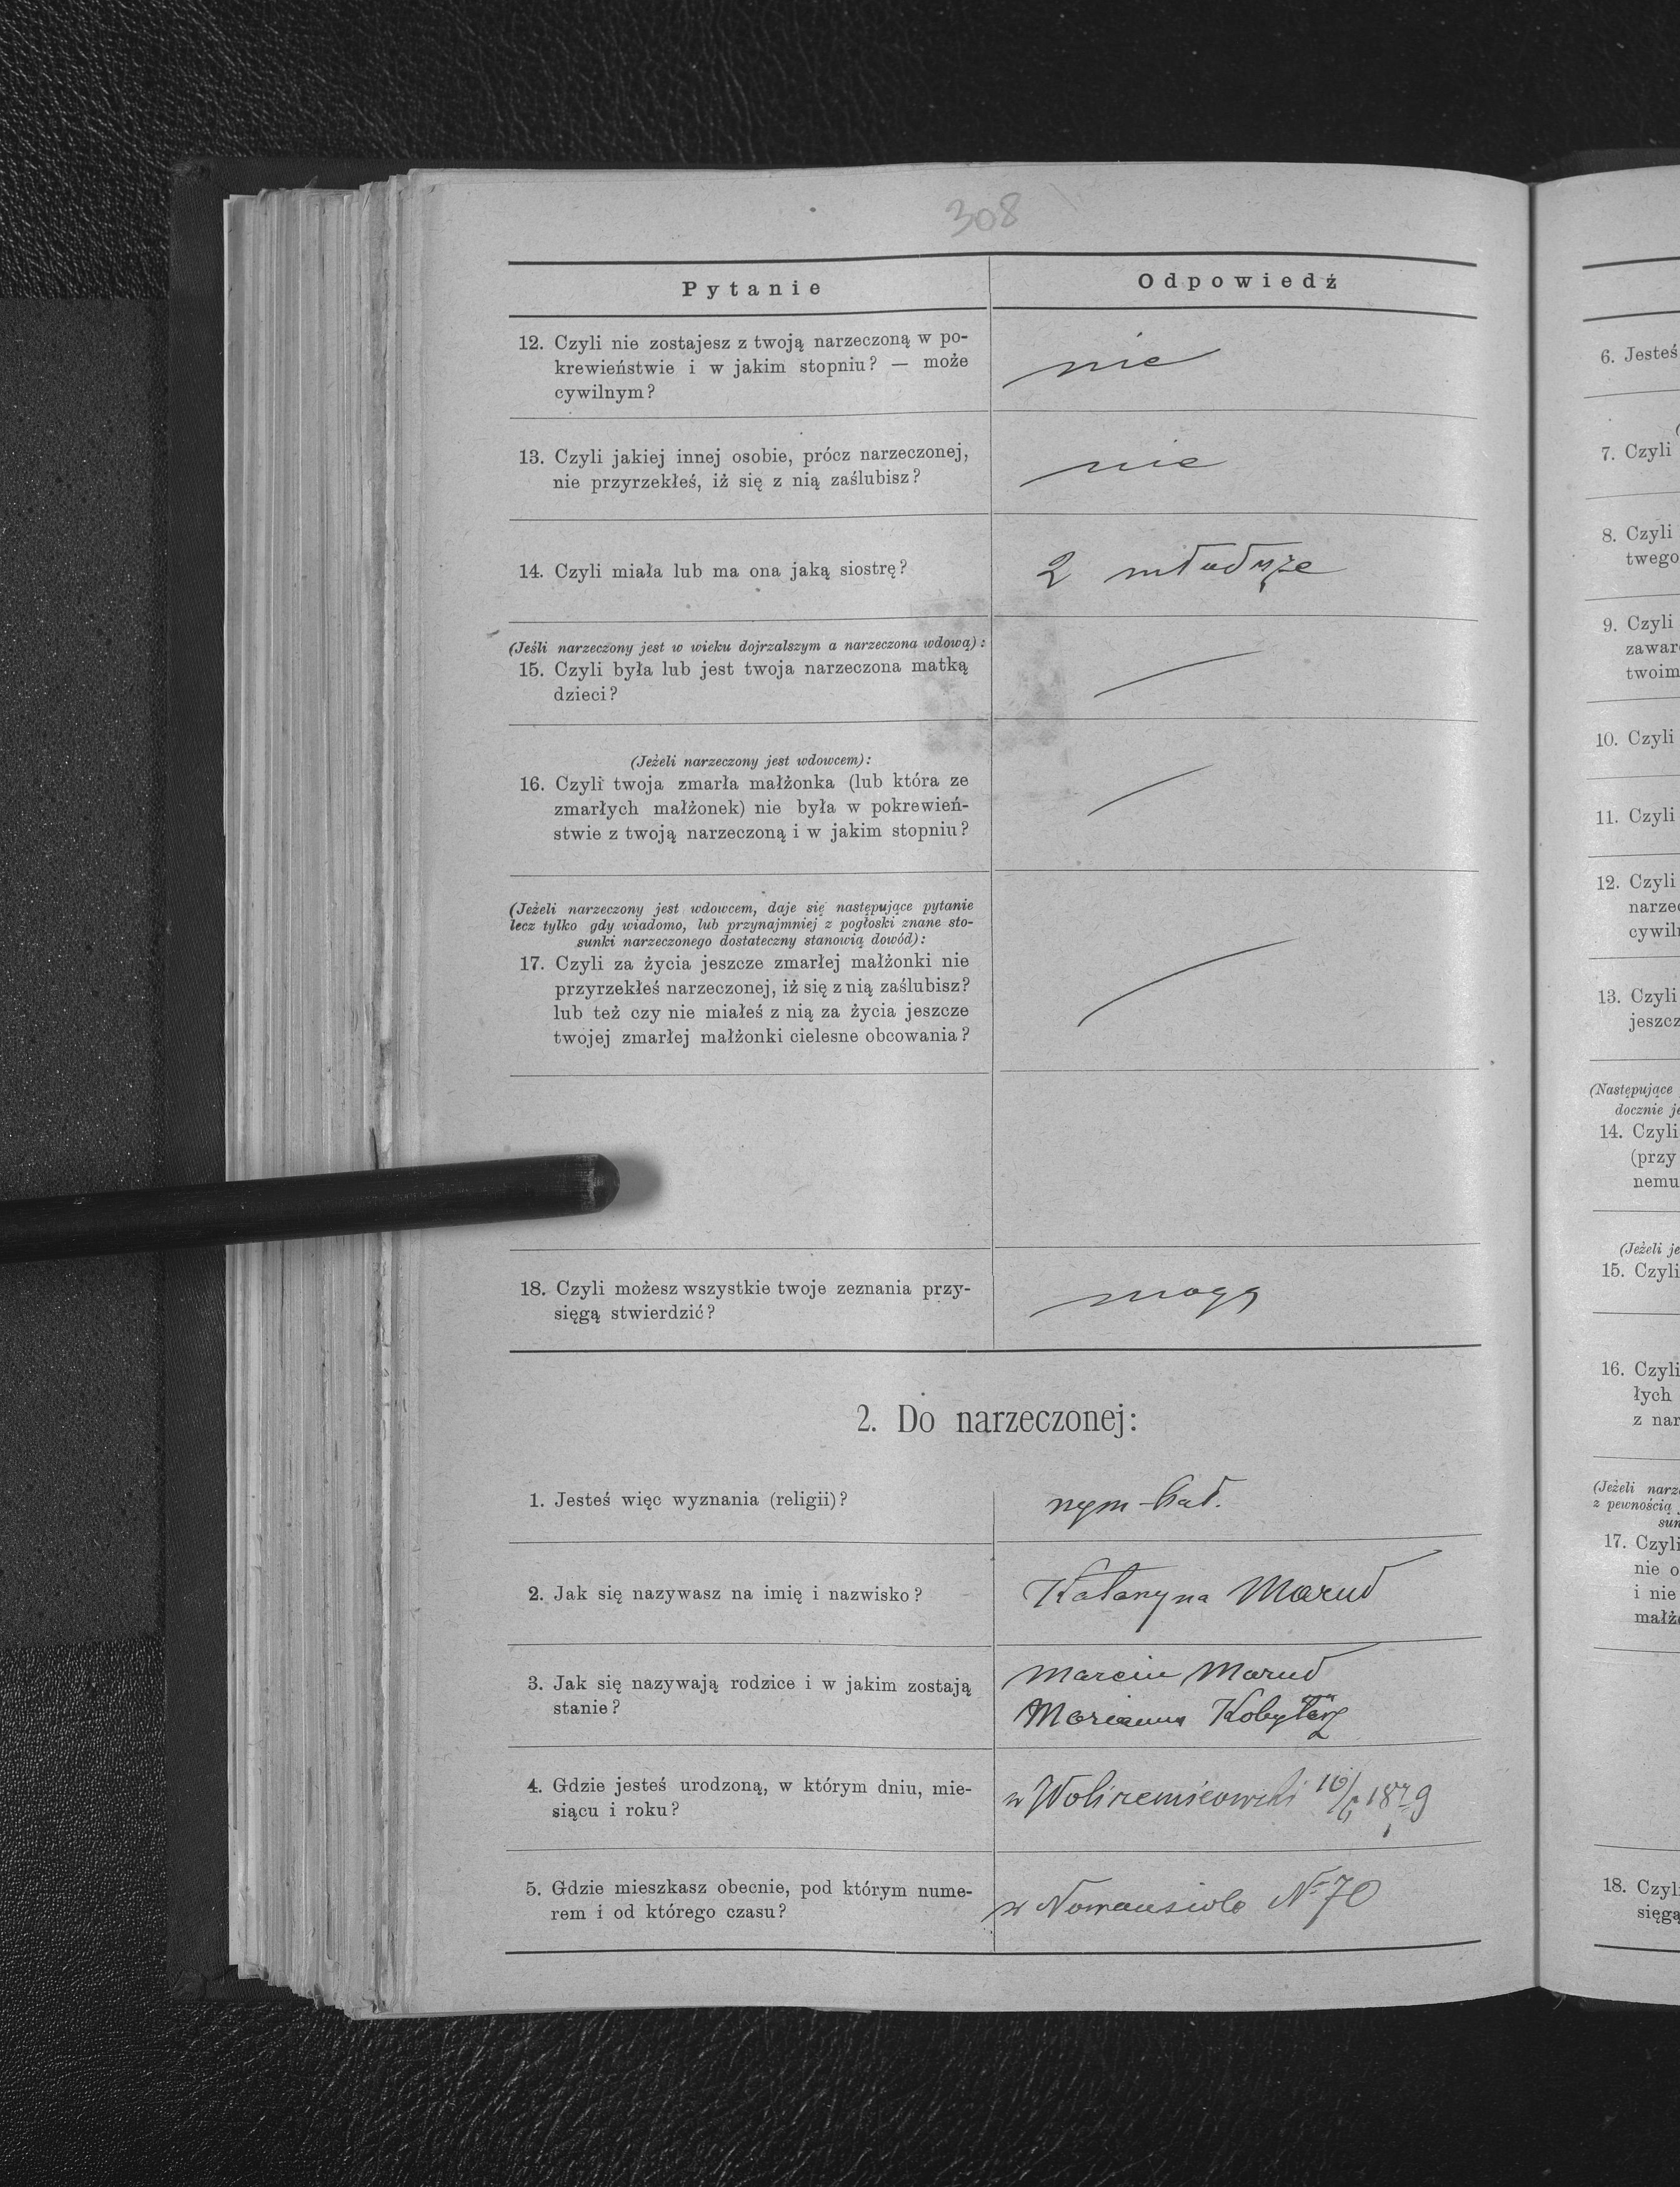 308
Pytanie
Odpowiedź
12. Czyli nie zostajesz z twoją narzeczoną w po-
krewieństwie i w jakim stopniu? — może
cywilnym?
nie
13. Czyli jakiej innej osobie, prócz narzeczonej,
nie przyrzekłeś, iż się z nią zaślubisz?
nie
14. Czyli miała lub ma ona jaką siostrę?
2 młodsze
(Jeśli narzeczony jest w wieku dojrzalszym a narzeczona wdową):
15. Czyli była lub jest twoja narzeczona matką
dzieci?
(Jeżeli narzeczony jest wdowcem):
16. Czyli twoja zmarła małżonka (lub która ze
zmarłych małżonek) nie była w pokrewień-
stwie z twoją narzeczoną i w jakim stopniu?
(Jeżeli narzeczony jest wdowcem, daje się następujące pytanie
lecz tylko gdy wiadomo, lub przynajmniej z pogłoski znane sto-
sunki narzeczonego dostateczny stanowią dowód):
17. Czyli za życia jeszcze zmarłej małżonki nie
przyrzekłeś narzeczonej, iż się z nią zaślubisz?
lub też czy nie miałeś z nią za życia jeszcze
twojej zmarłej małżonki cielesne obcowania?
18. Czyli możesz wszystkie twoje zeznania przy-
sięgą stwierdzić?
mogę
2. Do narzeczonej:
1. Jesteś więc wyznania (religii)?
rzym-kat.
2. Jak się nazywasz na imię i nazwisko?
Katarzyna Marud
3. Jak się nazywają rodzice i w jakim zostają
stanie?
Marcin Marud
Marianna
4. Gdzie jesteś urodzoną, w którym dniu, mie-
siącu i roku?
w 1879
5. Gdzie mieszkasz obecnie, pod którym nume-
rem i od którego czasu?
w N 70
6. Jesteś
7. Czyli
8. Czyli
twego
9. Czyli
zawar
twoim
10. Czyli
11. Czyli
12. Czyli
narzec
cywil
13. Czyli
jeszcz
(Następujące
docznie je
14. Czyli
(przy
nemu
(Jeżeli je
15. Czyli
16. Czyli
łych
z nar
(Jeżeli narz
z pewnością
sun
17. Czyli
nie o
i nie
małż
18. Czyl
sięgą